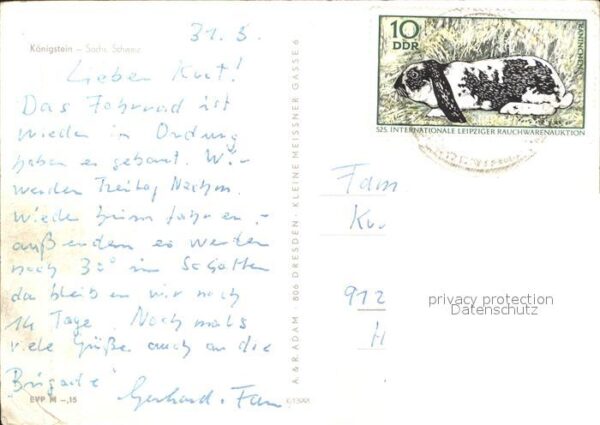 Königstein – Sächs. Schweiz
31. 5.
Lieber Kurt!
Das Fahrrad ist
wieder in Ordnung
haben es gebaut. Wi-
werden Freitag Nachm.
wieder heim fahren,-
außer dem es werden
noch 30° im Schatten
da bleiben wir noch
14 Tage. Nochmals
viele Grüße auch an die
Brigade
Gerhard + Fam
EVP M –,15
A & R ADAM · 806 DRESDEN · KLEINE MEISSNER GASSE 6
10
DDR
KANINCHEN
525. INTERNATIONALE LEIPZIGER RAUCHWARENAUKTION
Fam
Ku
912
H
privacy protection
Datenschutz